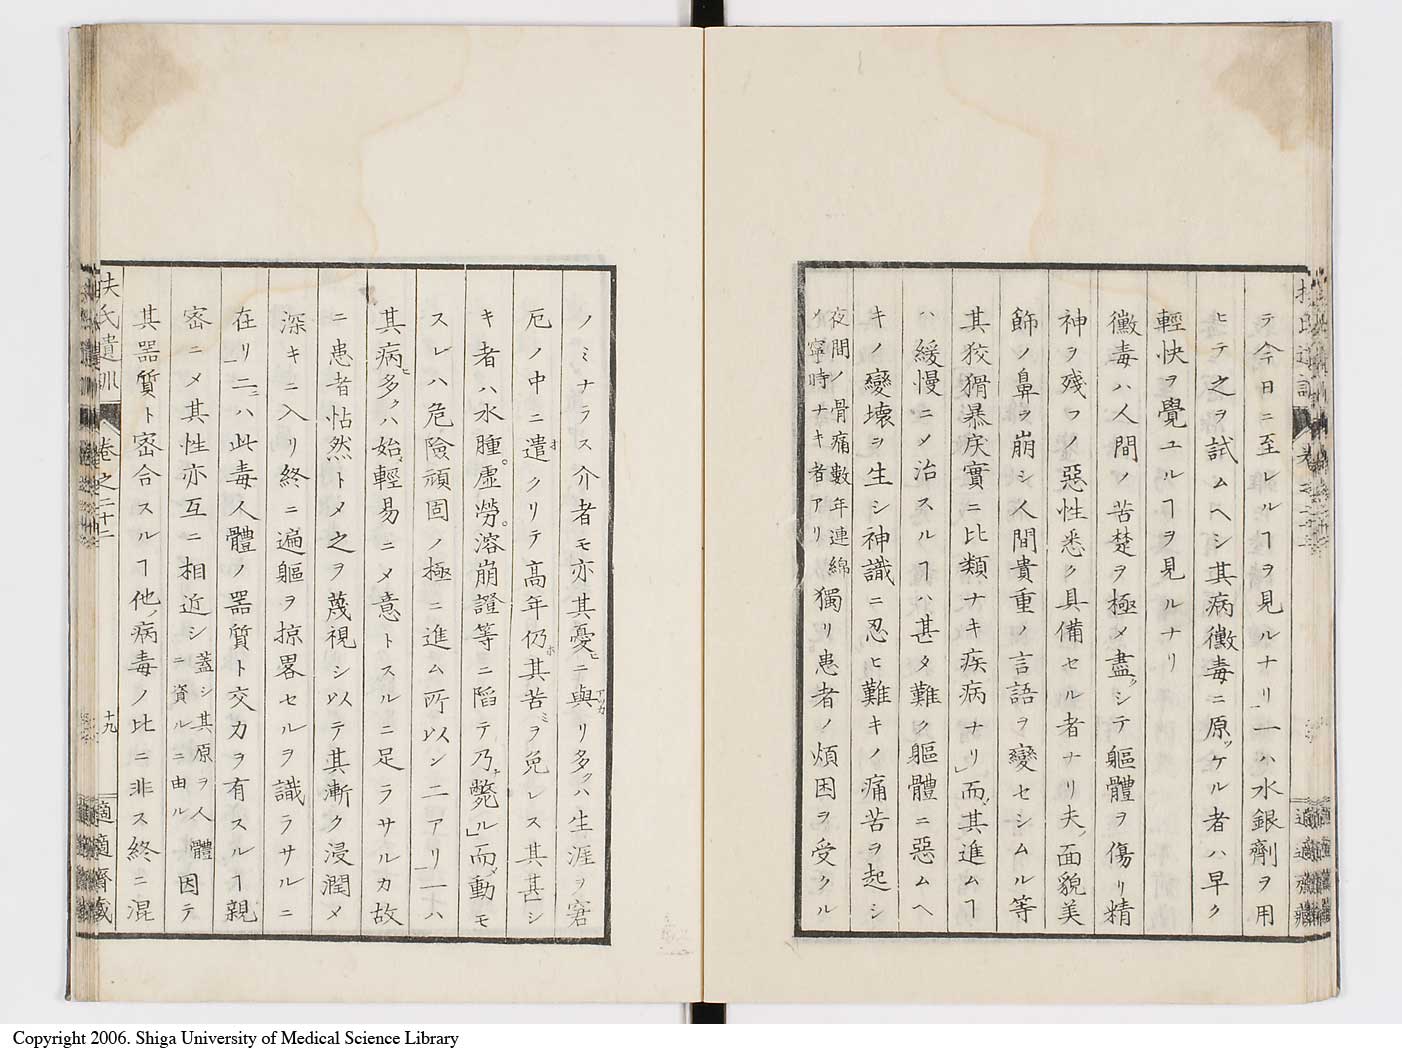 テ今日ニ至レルヿヲ見ルナリ」一ハ水銀劑ヲ用
ヒテ之ヲ試ムヘシ其病黴毒ニ原ツケル者ハ早ク
輕快ヲ覺ユルヿヲ見ルナリ
黴毒ハ人間ノ苦楚ヲ極メ盡クシテ軀體ヲ傷リ精
神ヲ殘フノ惡性悉ク具備セル者ナリ夫ノ面貌美
飾ノ鼻ヲ崩シ人間貴重ノ言語ヲ變セシムル等
其狡猾暴戾實ニ比類ナキ疾病ナリ」而其進ムヿ
ハ緩慢ニメ治スルヿハ甚タ難ク軀體ニ惡ムヘ
キノ變壊ヲ生シ神識ニ忍ヒ難キノ痛苦ヲ起シ
夜間ノ骨痛數年連綿
ノ寧時ナキ者アリ
獨リ患者ノ煩困ヲ受クル
ノミナラス介者モ亦其憂ヒニ與リ多クハ生涯ヲ窘
厄ノ中ニ遣クリテ高年仍其苦ミヲ免レス其甚シ
キ者ハ水腫。虛勞。溶崩證等ニ陷テ乃斃ル」而動モ
スレハ危險頑固ノ極ニ進ム所以ン二アリ」一ハ
其病多クハ始輕易ニメ意トスルニ足ラサルカ故
ニ患者帖然トメ之ヲ蔑視シ以テ其漸ク浸潤メ
深キニ入リ終ニ遍軀ヲ掠畧セルヲ識ラサルニ
在リ」二ハ此毒人體ノ器質ト交力ヲ有スルヿ親
密ニメ其性亦互ニ相近シ
蓋シ其原ヲ人體
ニ資ルニ由ル
因テ
其器質ト密合スルヿ他ノ病毒ノ比ニ非ス終ニ混
扶氏遺訓
卷之二十二
十九
適適齋藏